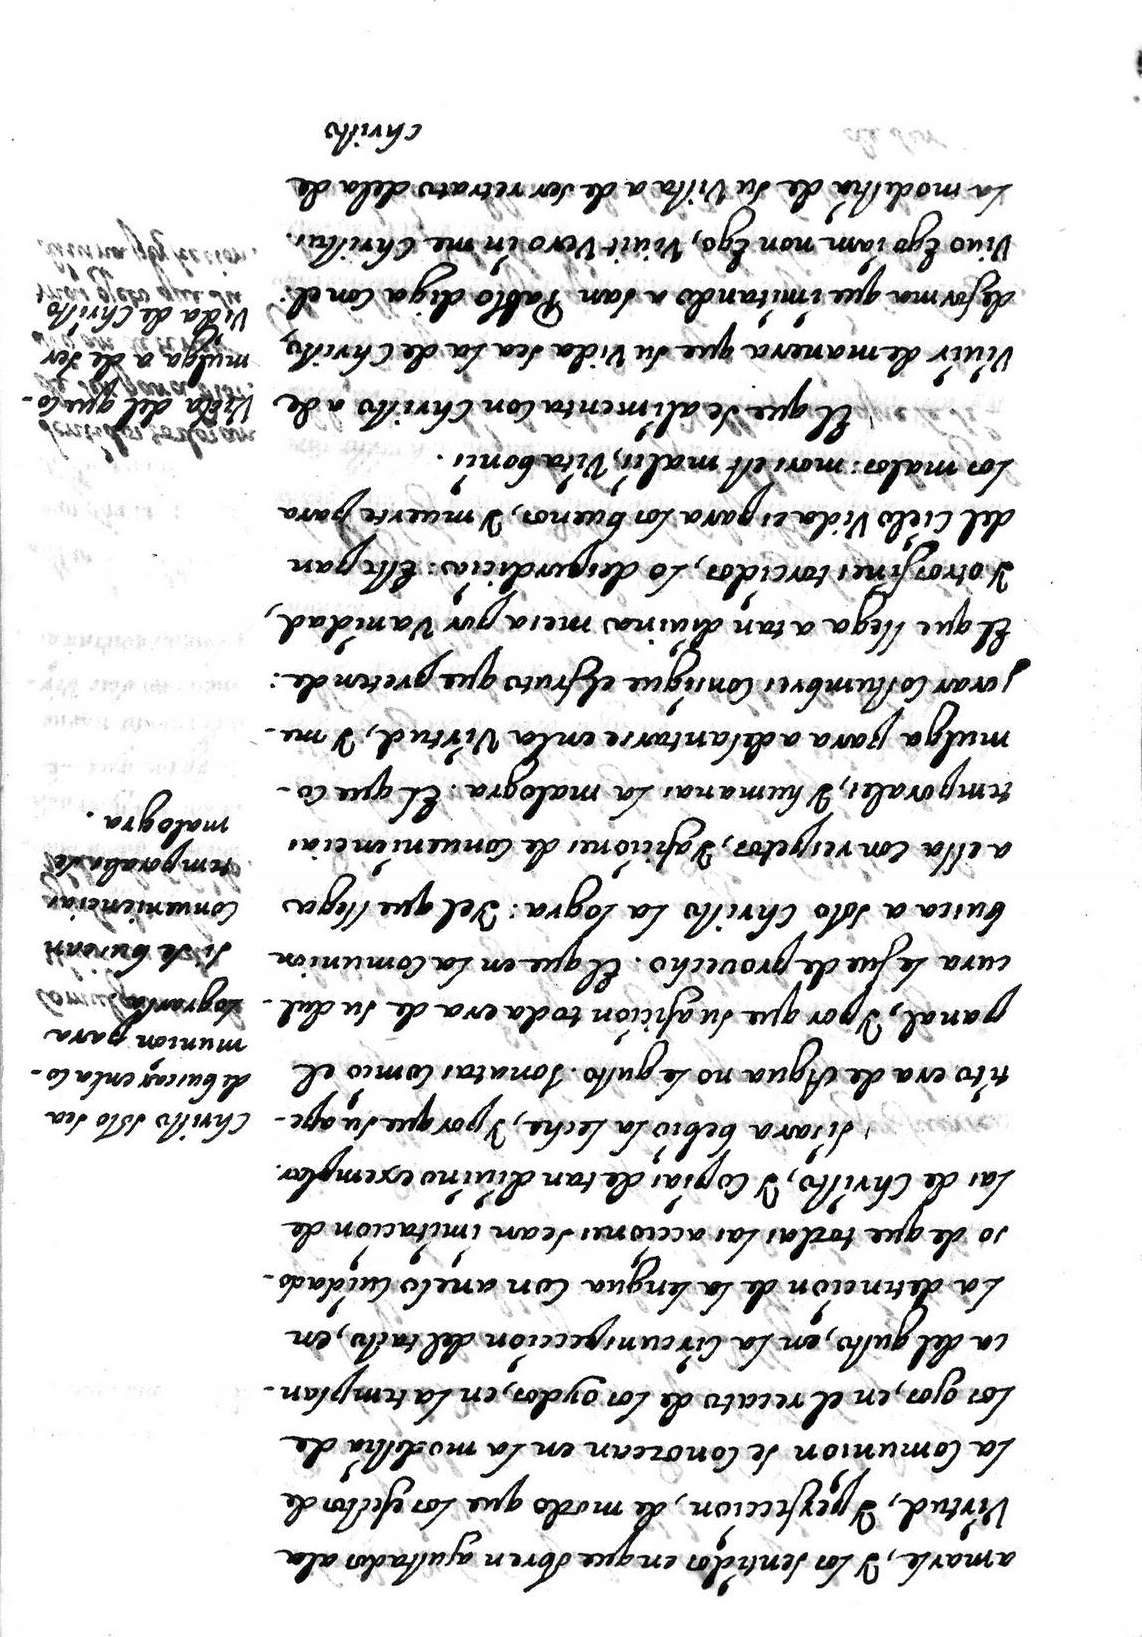 amarle, Y los sentidos en que obren ajustados ala
Virtud, Y perfeccion, de modo que los efectos de
La Comunion se Conozcan en la modestia de
los ojos, en el recato de los oydos, en la templan-
ca del gusto, en la Circunspeccion del tacto, en
La detencion de la lengua Con anelo Cuidado-
so de que todas las acciones sean imitacion de
las de Christo, Y Copias de tan diuino exemplo.
Sisara bebio la leche, Y porque su ape-
tito era de Agua no le gusto. Jonatas Comio el
panal, Y por que su aficion toda era de su dul-
cura le fue de prouecho. El que en la Comunion
busca a solo Christo la logra: Y el que llega
a ella Con respetos, Y aficiones de Conueniencias
temporales, Y humanas la malogra. El que co-
mulga para adelantarse en la Virtud, Y me-
jorar Costumbres Consigue el fruto que pretende:
El que llega a tan diuina mesa por Vanidad,
Y otros fines torcidos, lo desperdicia: Este pan
del cielo Vida es para los buenos, Y muerte para
los malos: mors est malis, Vita bonis.
El que se alimenta Con Christo a de
Viuir de manera que su Vida sea la de Christo,
de forma que imitando a San Pablo diga Con el:
Viuo Ego iam non Ego, Viuit Vero in me Christus.
La modestia de su Vista a de ser retrato dela de
Christo
Christo solo sea
de buscar en la Co-
munion para
Lograrla
si se buscan
Conueniencias
temporales se
malogra.
Vida del que Co-
mulga a de ser
Vida de Christo